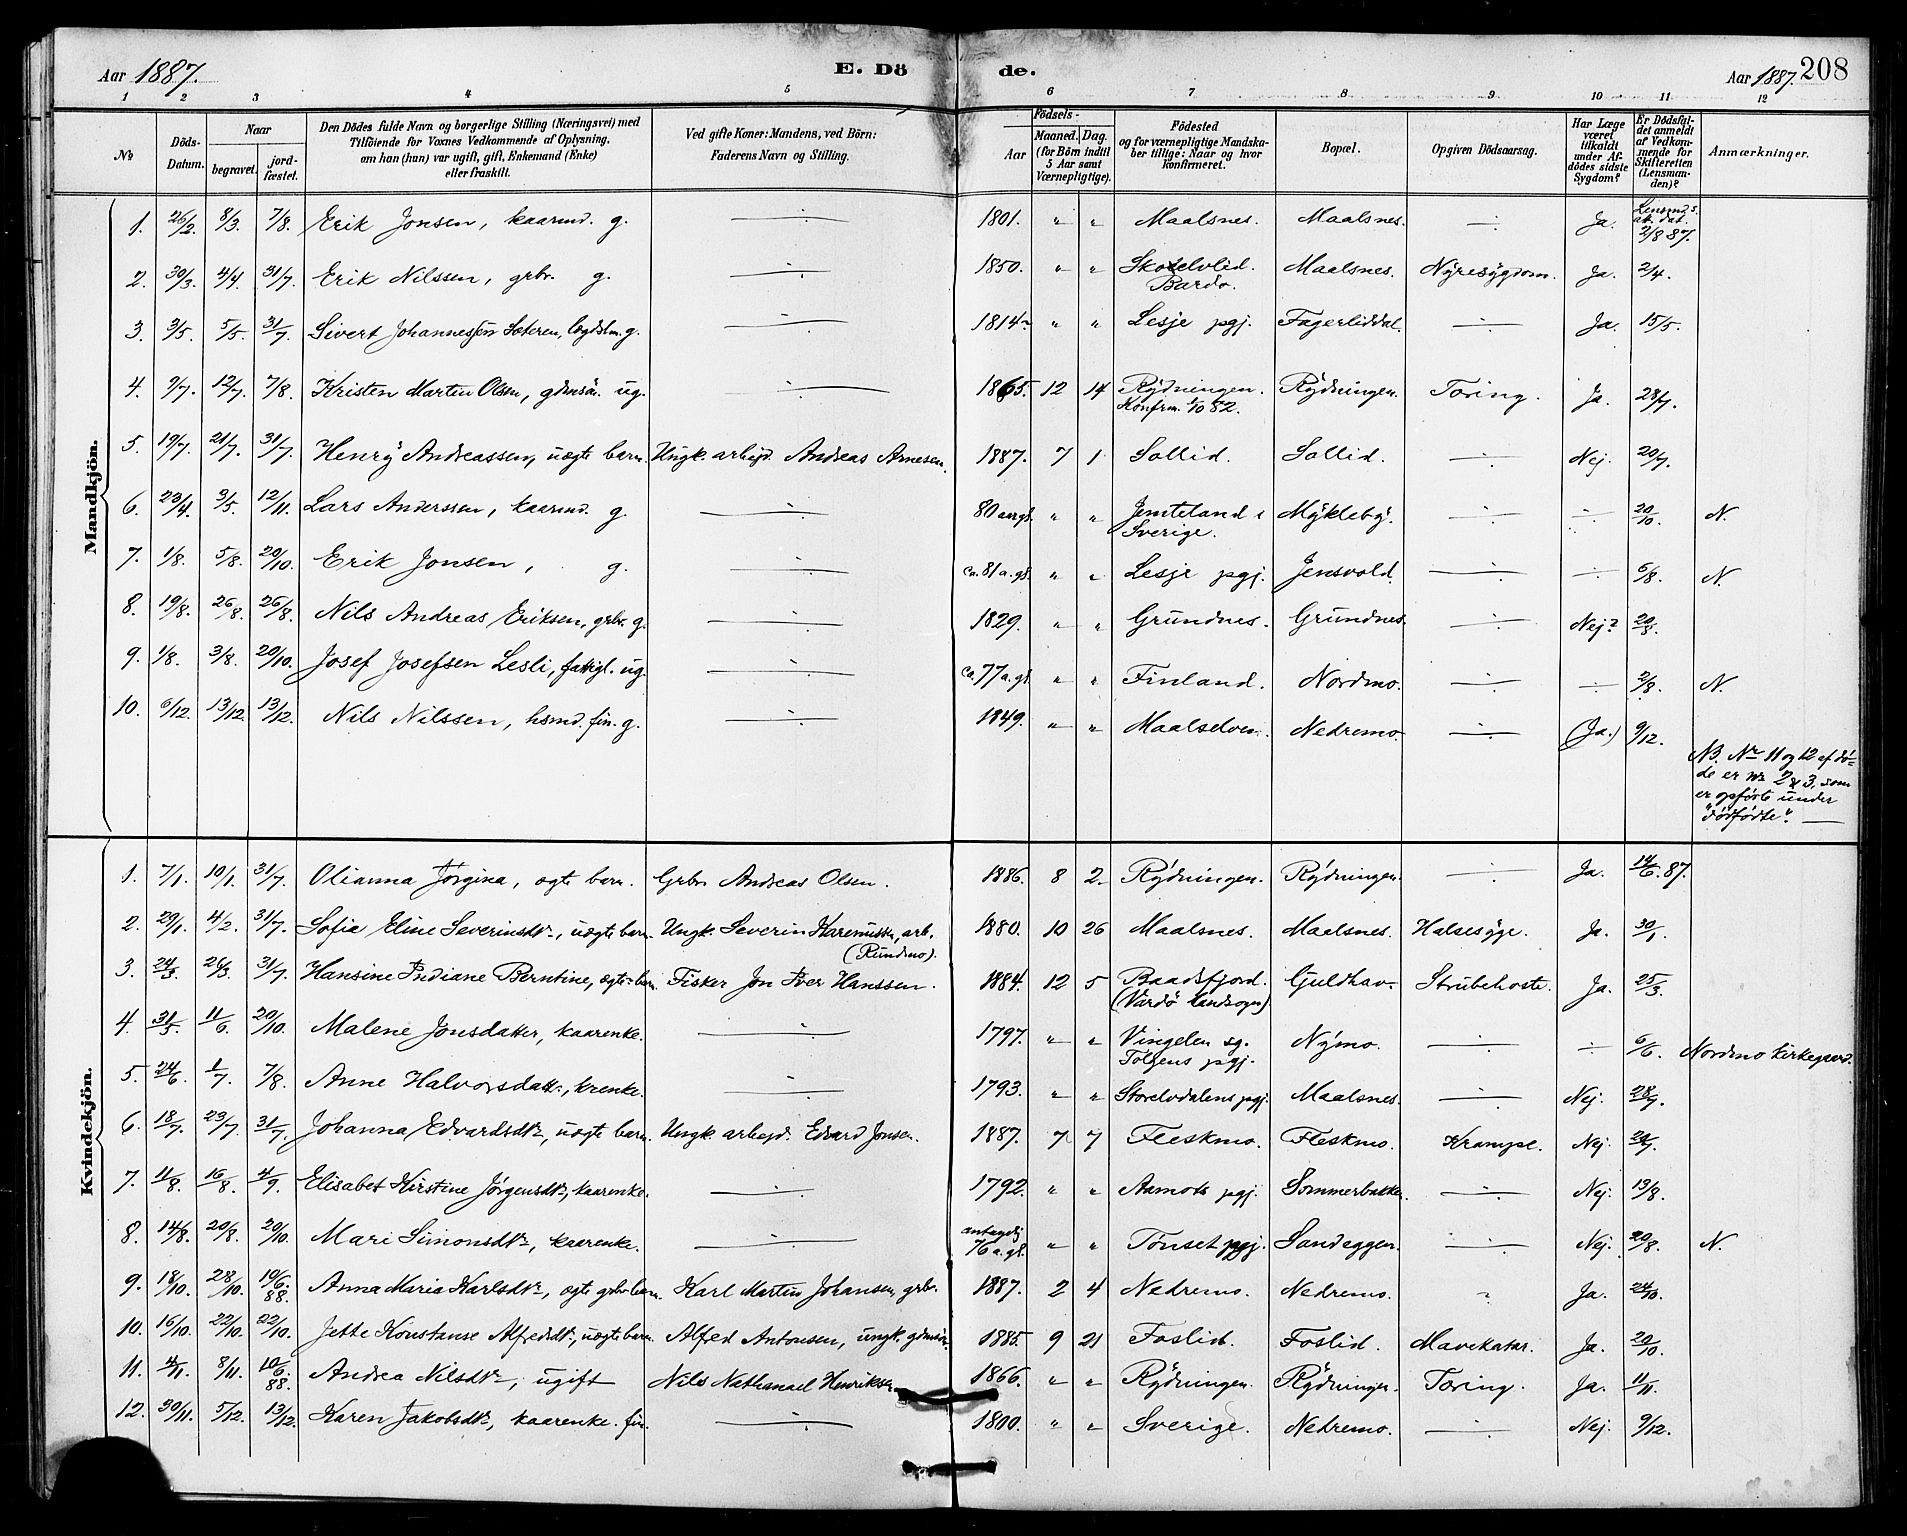 Aar 1887. E. Dö de. Aar 1887. 208
1 2 3 4 5 6 7 8 9 10 11 12
№ Döds-Datum. Naar begravet. jord-fæstet. Den Dödes fulde Navn og borgerlige Stilling (Næringsvei) med Tilföiende for Voxnes Vedkommende af Oplysning, om han (hun) var ugift, gift, Enkemand (Enke) eller fraskilt. Ved gifte Koner: Mandens, ved Börn: Faderens Navn og Stilling. Födsels- Aar Maaned. Dag. (for Börn indtil 5 Aar samt Værnepligtige). Födested og for værnepligtige Mandskaber tillige: Naar og hvor konfirmeret. Bopæl. Opgiven Dödsaarsag. Har Læge været tilkaldt under Afdödes sidste Sygdom? Er Dödsfaldet anmeldt af Vedkommende for Skifteretten (Lensmanden)? Anmærkninger.
Mandkjön.
1. 26/2 8/3. 7/8. Erik Jonsen, kaarmd. g. —:— 1801. " " Maalsnes. Maalsnes. —:— Ja. Lensmds. att. dat. 2/8 87.
2. 30/3. 4/4. 31/7. Erik Nilssen, grbr. g. —:— 1850. " " Skotelvlid. Bardo. Maalsnes. Nyresygdom. Ja. 2/4.
3. 3/5. 5/5. 31/7. Sivert Johannessen Sæteren, lægdslm. g. —:— 1814. " " Lesje pgj. Fagerliddal. —:— Ja. 15/5.
4. 9/7. 12/7. 7/8. Kristen Martin Olsen, gdmsön. ug. —:— 1865. 12 14 Rydningen. Konfrm. 1/10 82. Rydningen. Toring. Ja. 28/7.
5. 19/7. 21/7. 31/7. Henry Andreassen, uægte barn. Ungk. arbejd. Andreas Arnesen. 1887. 7 1 Sollid. Sollid. —:— Nej. 20/7.
6. 23/4. 3/5. 12/11. Lars Anderssen, kaarmd. g. —:— 80 aar gl. " " Jemteland i Sverige. Mykleby. —:— —:— 20/10. N.
7. 1/8. 5/8. 20/10. Erik Jonsen, g. —:— ca. 81 a. gl. " " Lesje pgj. Jensvold. —:— —:— 6/8. N.
8. 19/8. 26/8. 26/8. Nils Andreas Eriksen, grbr. g. —:— 1829. " " Grundnes. Grundnes. —:— Nej? 20/8.
9. 1/8. 3/8. 20/10. Josef Josefsen Lesli, fattigl. ug. —:— ca. 77 a. gl. " " Finland. Nordmo. —:— —:— 2/8. N.
10. 6/12. 13/12. 13/12. Nils Nilssen, hsmd. fin. g. —:— 1849. " " Maalselven. Nedremo. —:— (Ja.) 9/12.
NB. Nr 11 og 12 af dö-
de er nr 2 & 3, som
er opförte under
"dödfödte".—
Kvindekjön.
1. 7/1. 10/1. 31/7. Olianna Jörgina, ægte barn. Grbr Andreas Olsen. 1886. 8 2 Rydningen. Rydningen. —:— Ja. 14/6 87.
2. 29/1. 4/2. 31/7. Sofie Eline Severinsdtr, uægte barn. Ungk. Severin Karenussen, arb. (Rundmo). 1880. 10 26 Maalsnes. Maalsnes. Halsesyge. Ja. 30/1.
3. 24/3. 26/3. 31/7. Hansine Indiane Berntine, ægte barn. Fisker Jon Iver Hanssen. 1884. 12 5 Baadsfjord. (Vardö landsogn) Guldhav. Strubehoste. Ja. 25/3.
4. 31/5. 11/6. 20/10. Malene Jonsdatter, kaarenke. —:— 1797. " " Vingelen sg. Tolgens pgj. Nymo. —:— —:— 6/6. Nordmo kirkegaard.
5. 24/6. 1/7. 7/8. Anne Halvorsdatt., krenke. —:— 1793. " " Storelvdalens pgj. Maalsnes. —:— Nej. 28/7.
6. 18/7. 23/7. 31/7. Johanna Edvardsdtr, uægte barn. Ungk. arbejd. Edvard Jonsen. 1887. 7 7 Fleskmo. Fleskmo. Krampe. Nej. 24/7.
7. 11/8. 16/8. 4/9. Elisabet Kirstine Jörgensdtr, kaarenke. —:— 1792. " " Aamots pgj. Sommerbakken. —:— Nej. 13/8.
8. 14/8. 20/8. 20/10. Mari Simonsdtr, kaarenke. —:— antagelig 76 a. gl. " " Tönset pgj. Sandeggen. —:— Nej. 20/8. N.
9. 18/10. 28/10. 10/6 88. Anna Maria Karlsdtr, ægte grbr barn. Karl Martin Johansen, grbr. 1887. 2 4 Nedremo. Nedremo. " Ja. 24/10.
10. 16/10. 22/10. 22/10. Jette Konstanse Alfredsdtr, uægte barn. Alfred Antonsen, ungk. gdmsön. 1885. 9 21 Foslid. Foslid. Mavekatar. Ja. 20/10.
11. 4/11. 8/11. 10/6 88. Andrea Nilsdtr, ugift Nils Nathanael Henriksen 1866. " " Rydningen. Rydningen. Toring. Ja. 11/11.
12. 30/11. 5/12. 13/12. Karen Jakobsdtr, kaarenke. fin. —:— 1800. " " Sverige. Nedremo. —:— Nej. 9/12.